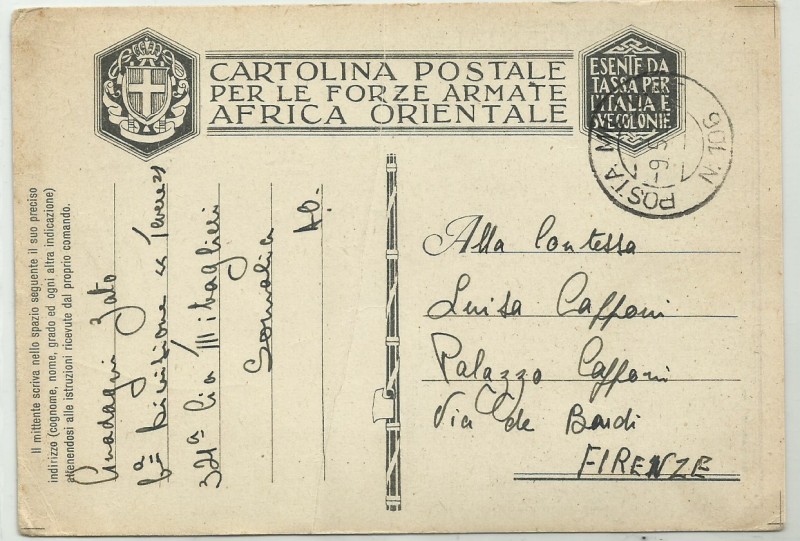 CARTOLINA POSTALE
PER LE FORZE ARMATE
AFRICA ORIENTALE
ESENTE DA
TASSA PER
L'ITALIA E
SVE COLONIE
POSTA M N. 106
Il mittente scriva nello spazio seguente il suo preciso
indirizzo (cognome, nome, grado ed ogni altra indicazione)
attenendosi alle istruzioni ricevute dal proprio comando.
6ª Divisione "Tevere"
321ª Cia Mitraglieri
Somalia
A.O.
Alla Contessa
Luisa Capponi
Palazzo Capponi
Via de Bardi
FIRENZE